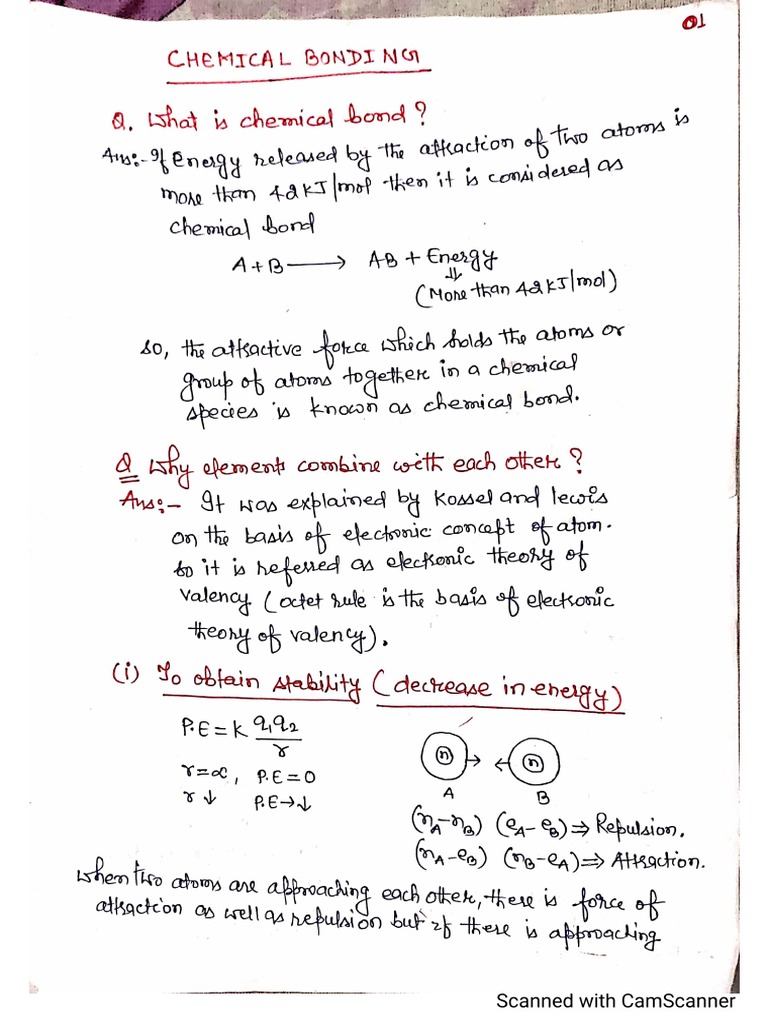 01
CHEMICAL BONDING
Q. What is chemical bond?
Ans:- If Energy released by the attraction of two atoms is
more than 42kJ/mol then it is considered as
chemical bond
A+B ⟶ AB + Energy
⇓
(More than 42kJ/mol)
so, the attractive force which holds the atoms or
group of atoms together in a chemical
species is known as chemical bond.
Q Why elements combine with each other?
Ans:- It was explained by Kossel and lewis
on the basis of electronic concept of atom.
so it is referred as electronic theory of
valency (octet rule is the basis of electronic
theory of valency).
(i) To obtain stability (decrease in energy)
P.E = K q₁q₂/r
r=∞, P.E=0
r↓ P.E→↓
(n) → ← (n)
A B
(nA-nB) (eA-eB) ⇒ Repulsion.
(nA-eB) (nB-eA) ⇒ Attraction.
when two atoms are approaching each other, there is force of
attraction as well as repulsion but if there is approaching
Scanned with CamScanner